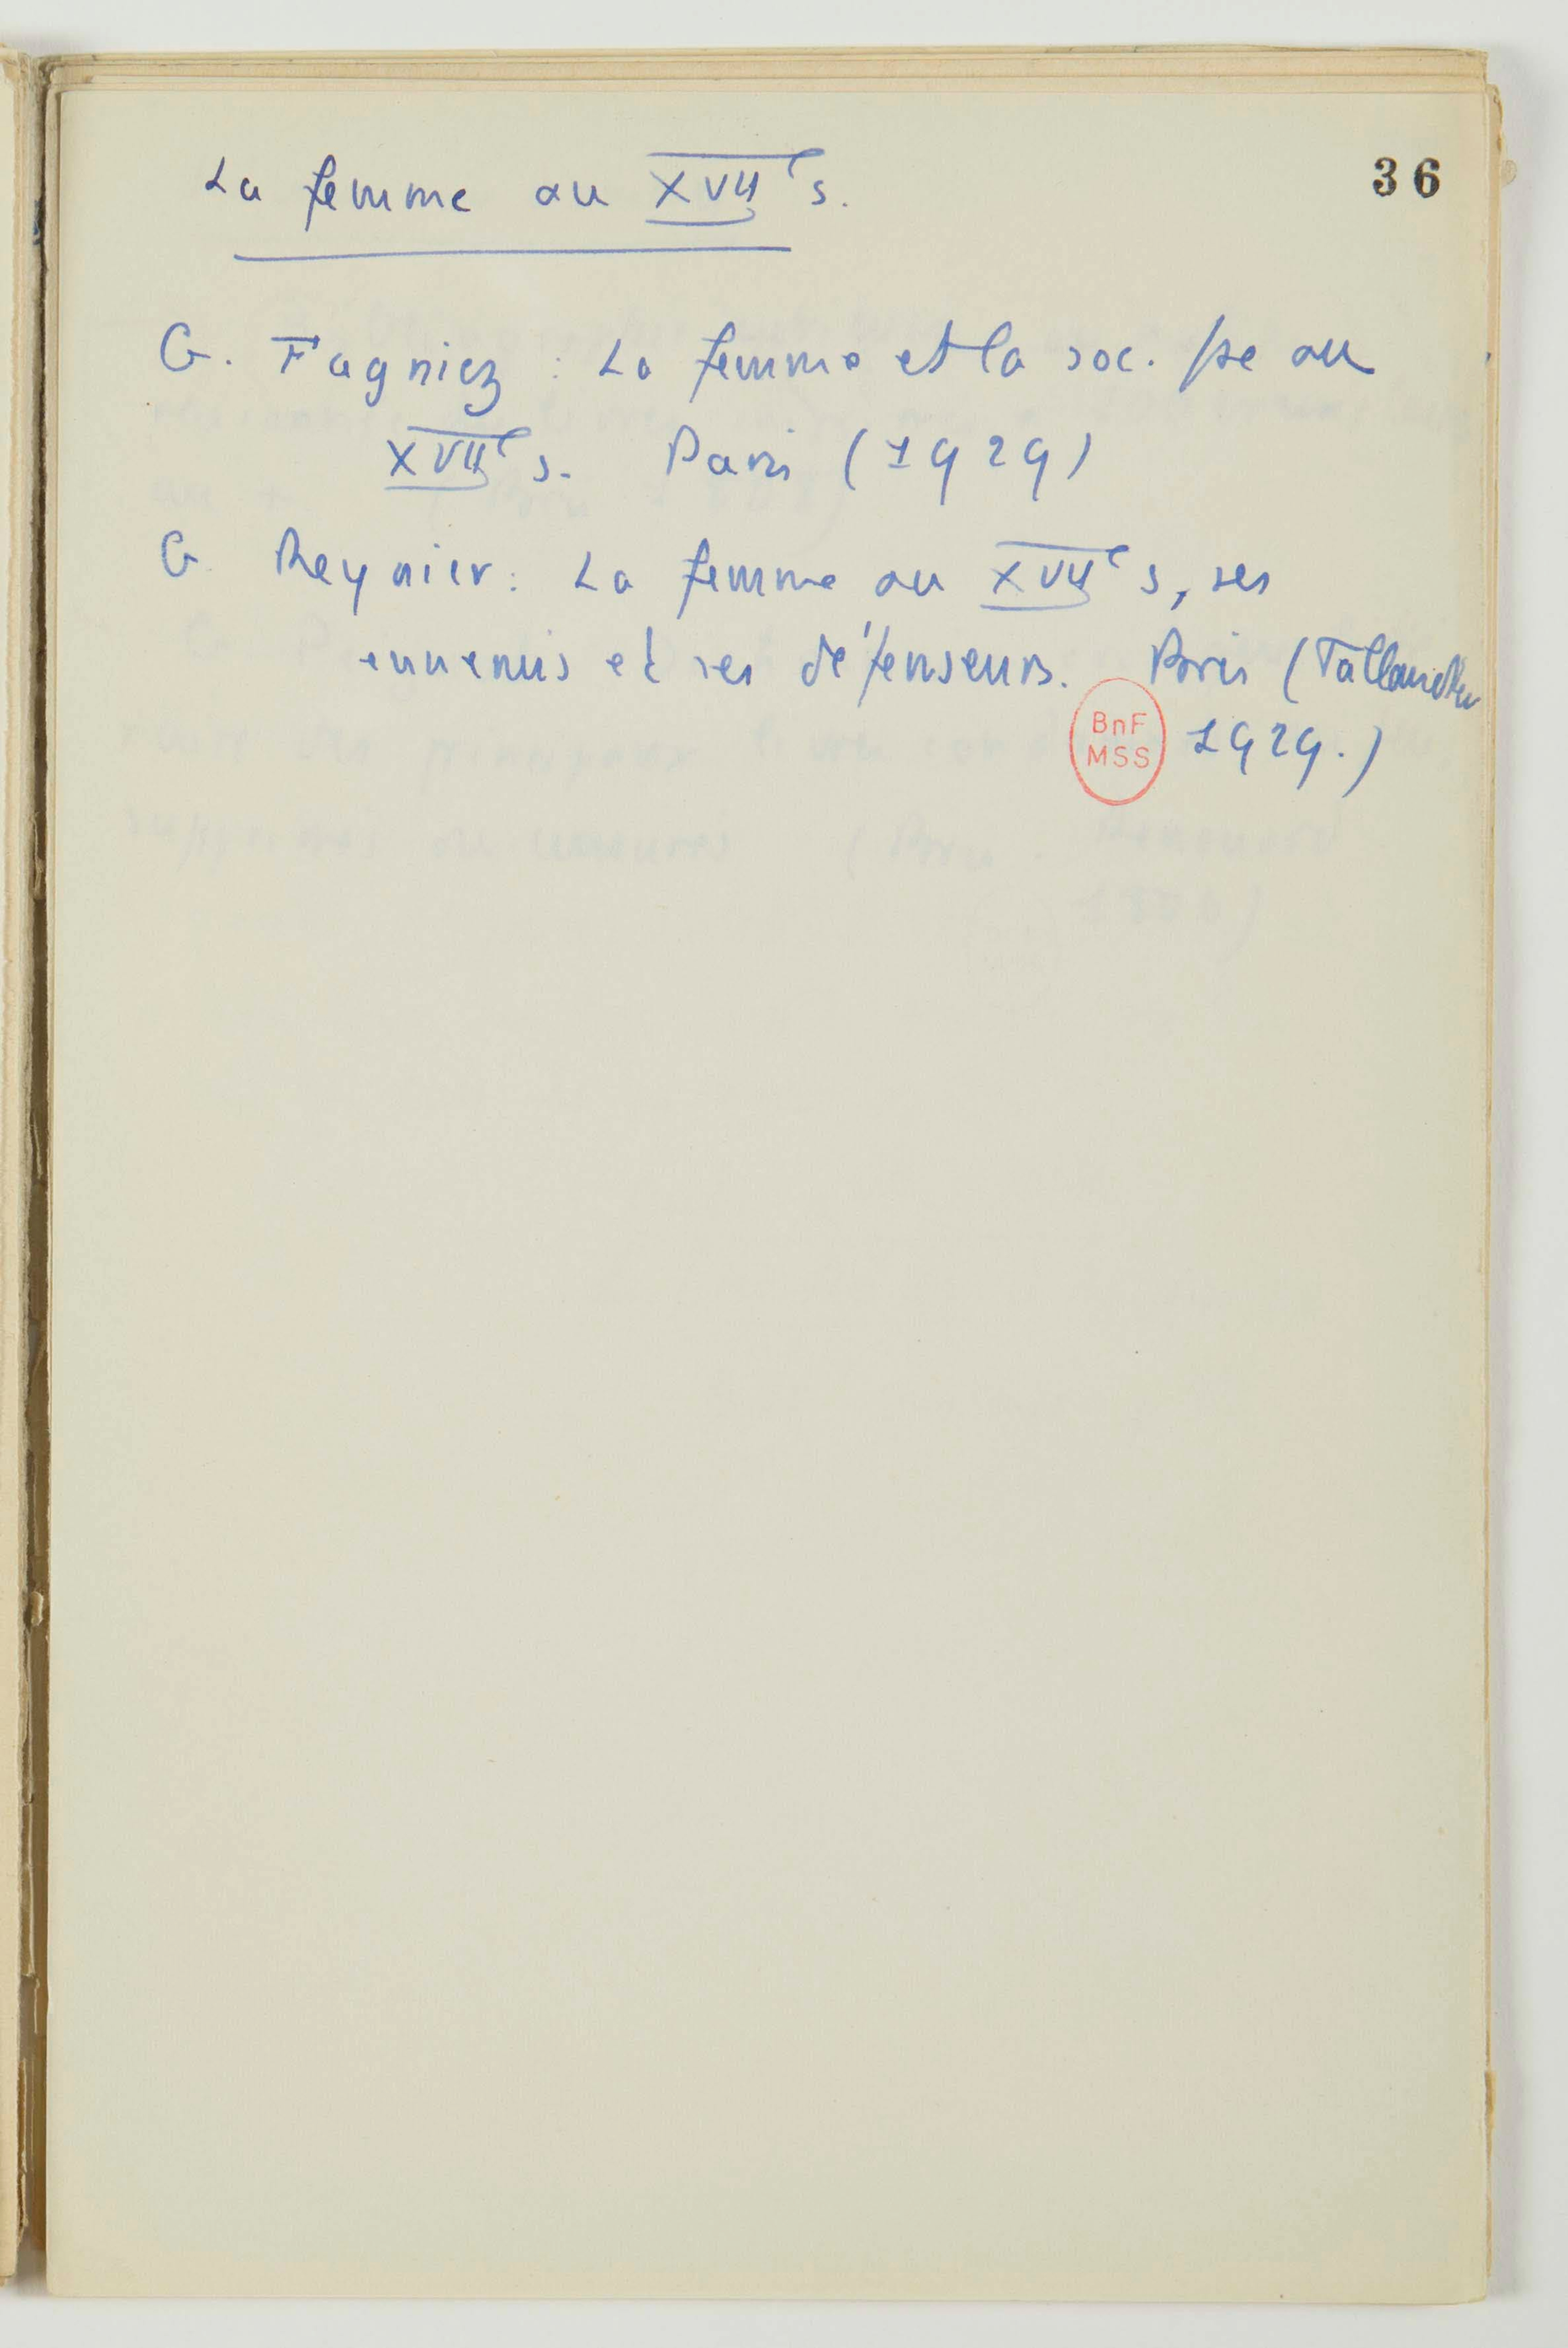 36
La femme au XVIIe s.
G. Fagniez : La femme et la soc. fse au
XVIIe s. Paris (1929)
G. Reynier : La femme au XVIIe s, ses
ennemis et ses défenseurs. Paris (Tallandier
1929.)
BnF
MSS